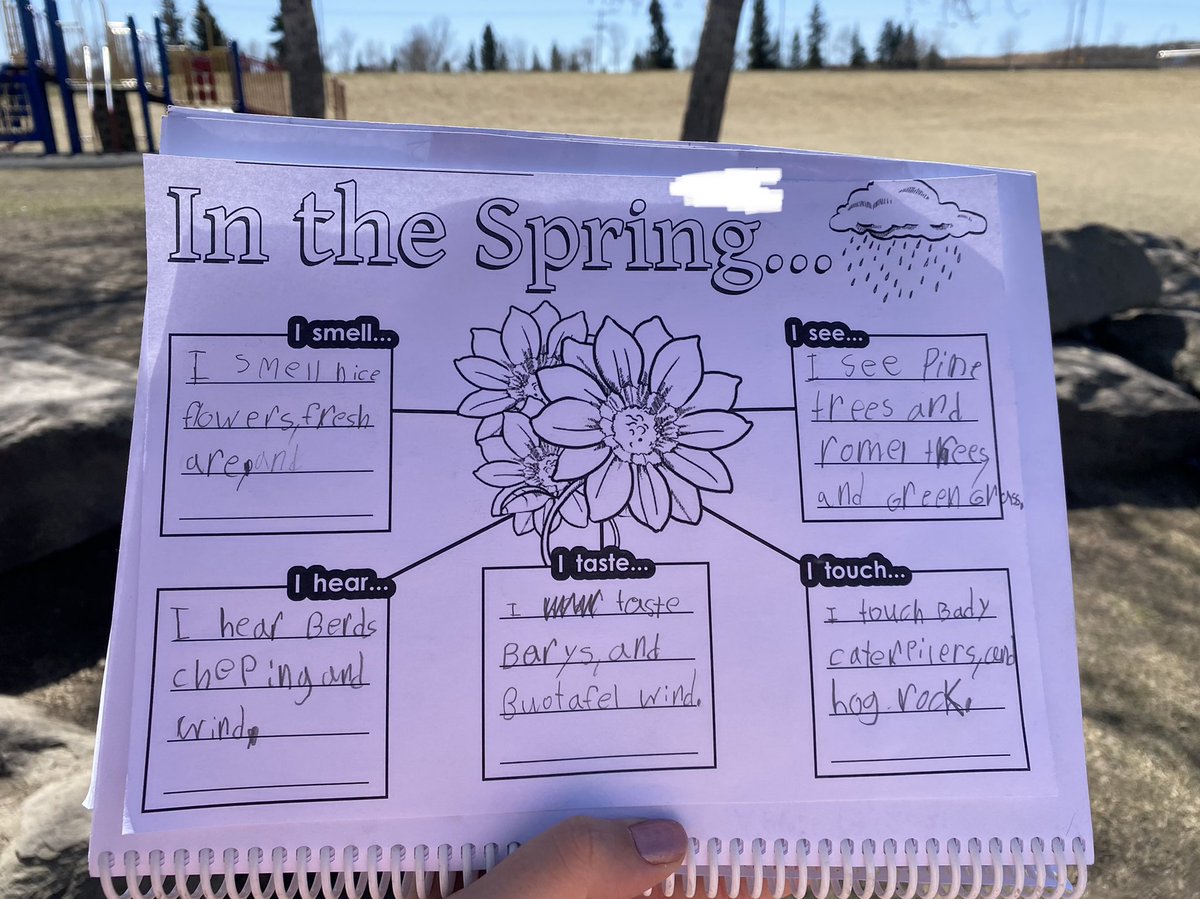 In the Spring...
I smell...
I smell nice
flowers, fresh
are, and
I see...
I see Pine
trees and
romel trees,
and Green Grass.
I hear...
I hear Berds
cheping and
wind.
I taste...
I taste
Barys, and
Buotafel wind.
I touch...
I touch Bady
caterpilers, and
hog rock.